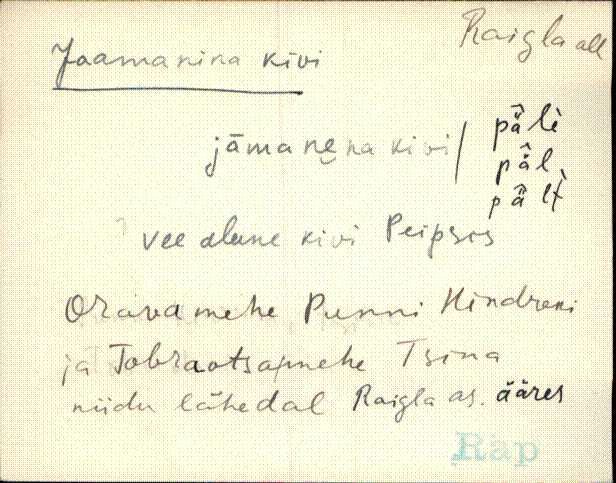 Raigla all
Jaamanina kivi
jāmanẹna kivi / pä̂lè
pä̂l
pä̂lt
vee alune kivi Peipsis
Oravamehe Punni Hindreni
ja Tobraotsapmehe Tsina
niidu lähedal Raigla as. ääres
Räp